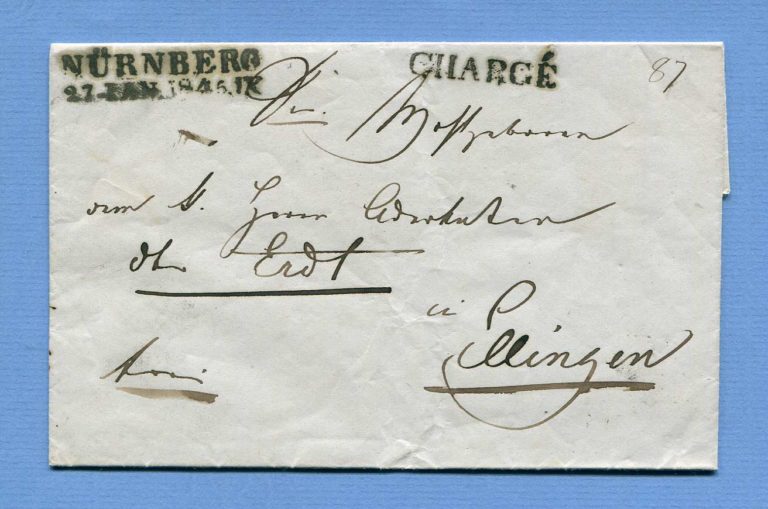 NÜRNBERG
27 JAN. 1846. IX
CHARGÉ
87
Wohlgeboren
dem k. Herrn Advokaten
Dr. Erdt
in Ellingen
frei